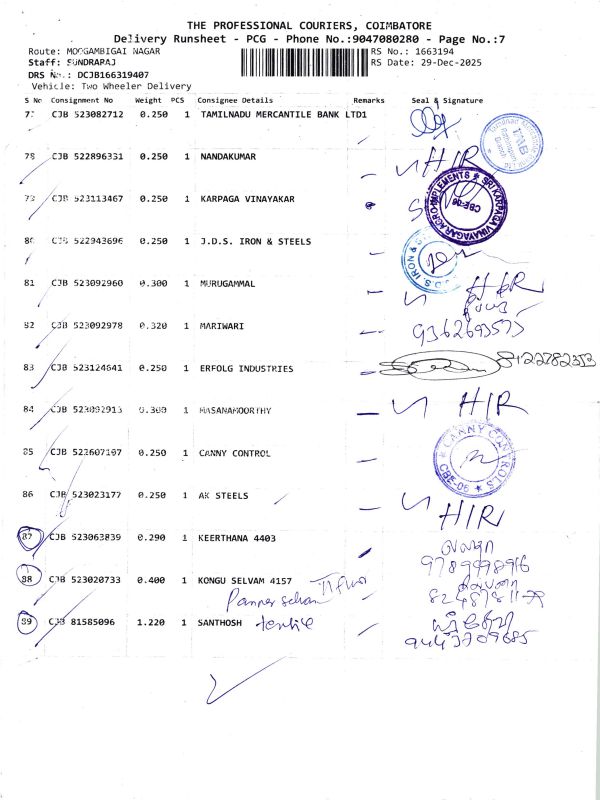 THE PROFESSIONAL COURIERS, COIMBATORE
Delivery Runsheet - PCG - Phone No.:9047080280 - Page No.:7
Route: MOOGAMBIGAI NAGAR RS No.: 1663194
Staff: SUNDRARAJ RS Date: 29-Dec-2025
DRS No.: DCJB166319407
Vehicle: Two Wheeler Delivery
S No Consignment No Weight PCS Consignee Details Remarks Seal & Signature
CJB 523082712 0.250 1 TAMILNADU MERCANTILE BANK LTD1
TMB
CJB 522896331 0.250 1 NANDAKUMAR HIR
CJB 523113467 0.250 1 KARPAGA VINAYAKAR
SRI KARPAGA VINAYAGAR AGRO IMPLEMENTS CBE-06
80 CJB 522943696 0.250 1 J.D.S. IRON & STEELS
J.D.S. IRON &
81 CJB 523092960 0.300 1 MURUGAMMAL
82 CJB 523092978 0.320 1 MARIWARI 9362693575
83 CJB 523124641 0.250 1 ERFOLG INDUSTRIES
84 CJB 523092913 0.300 1 MASANAMOORTHY HIR
85 CJB 522607107 0.250 1 CANNY CONTROL
CANNY CONTROLS CBE-06
86 CJB 523023177 0.250 1 AK STEELS HIR
87 CJB 523063839 0.290 1 KEERTHANA 4403
88 CJB 523020733 0.400 1 KONGU SELVAM 4157
89 CJB 81585096 1.220 1 SANTHOSH
9443709685